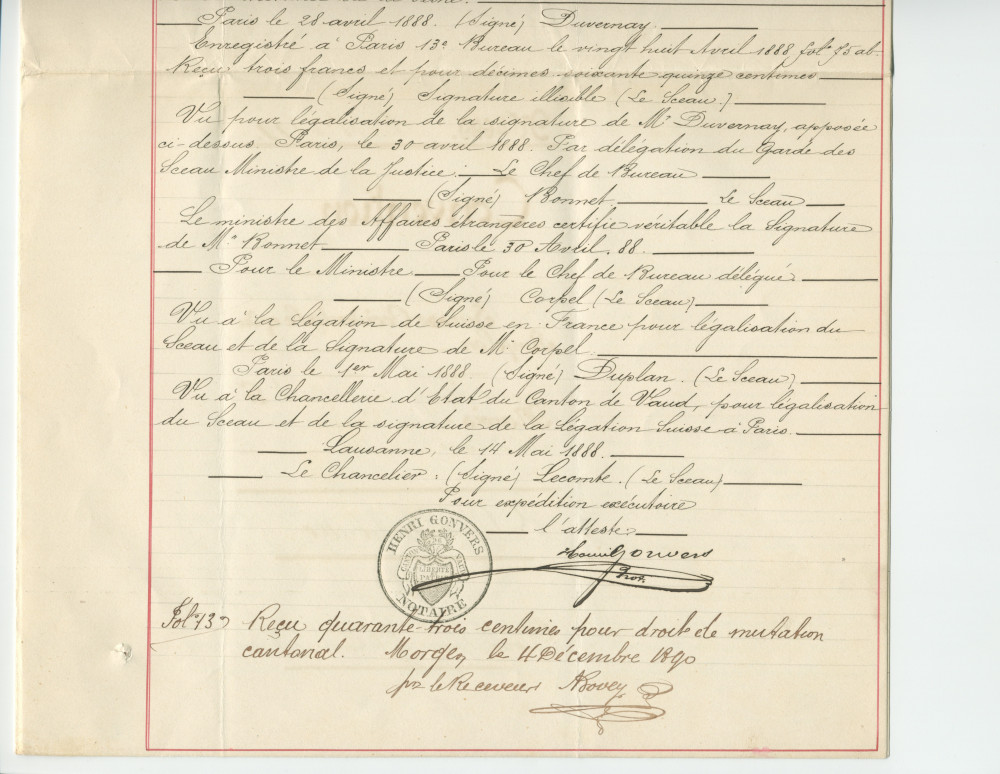 Paris le 28 avril 1888. (Signé) Duvernay.
Enregistré à Paris 13e Bureau le vingt huit Avril 1888, fol°
Reçu trois francs et pour décimes soixante quinze centimes
(Signé) Signature illisible (Le Sceau.)
Vu pour légalisation de la signature de Mr Duvernay, apposée
ci-dessus. Paris, le 30 avril 1888. Par délégation du Garde des
Sceau Ministre de la Justice. Le Chef de Bureau
(Signé) Bonnet. Le Sceau
Le ministre des Affaires étrangères certifie véritable la Signature
de Mr. Bonnet Paris le 30 Avril. 88.
Pour le Ministre Pour le Chef de Bureau délégué
(Signé) Corpel (Le Sceau)
Vu à la Légation de Suisse en France pour légalisation du
Sceau et de la Signature de Mr. Corpel.
Paris le 1er Mai 1888. (Signé) Duplan. (Le Sceau)
Vu à la Chancellerie d'Etat du Canton de Vaud, pour légalisation
du Sceau et de la signature de la Légation Suisse à Paris.
Lausanne, le 14 Mai 1888.
Le Chancelier : (Signé) Lecomte. (Le Sceau)
Pour expédition exécutoire
l'atteste
Henri Gonvers
Not.
HENRI GONVERS
CANTON DE VAUD
LIBERTÉ
PATRIE
NOTAIRE
Reçu quarante-trois centimes pour droit de mutation
cantonal. Morges, le 4 Décembre 1890
pr le Receveur: ABovey